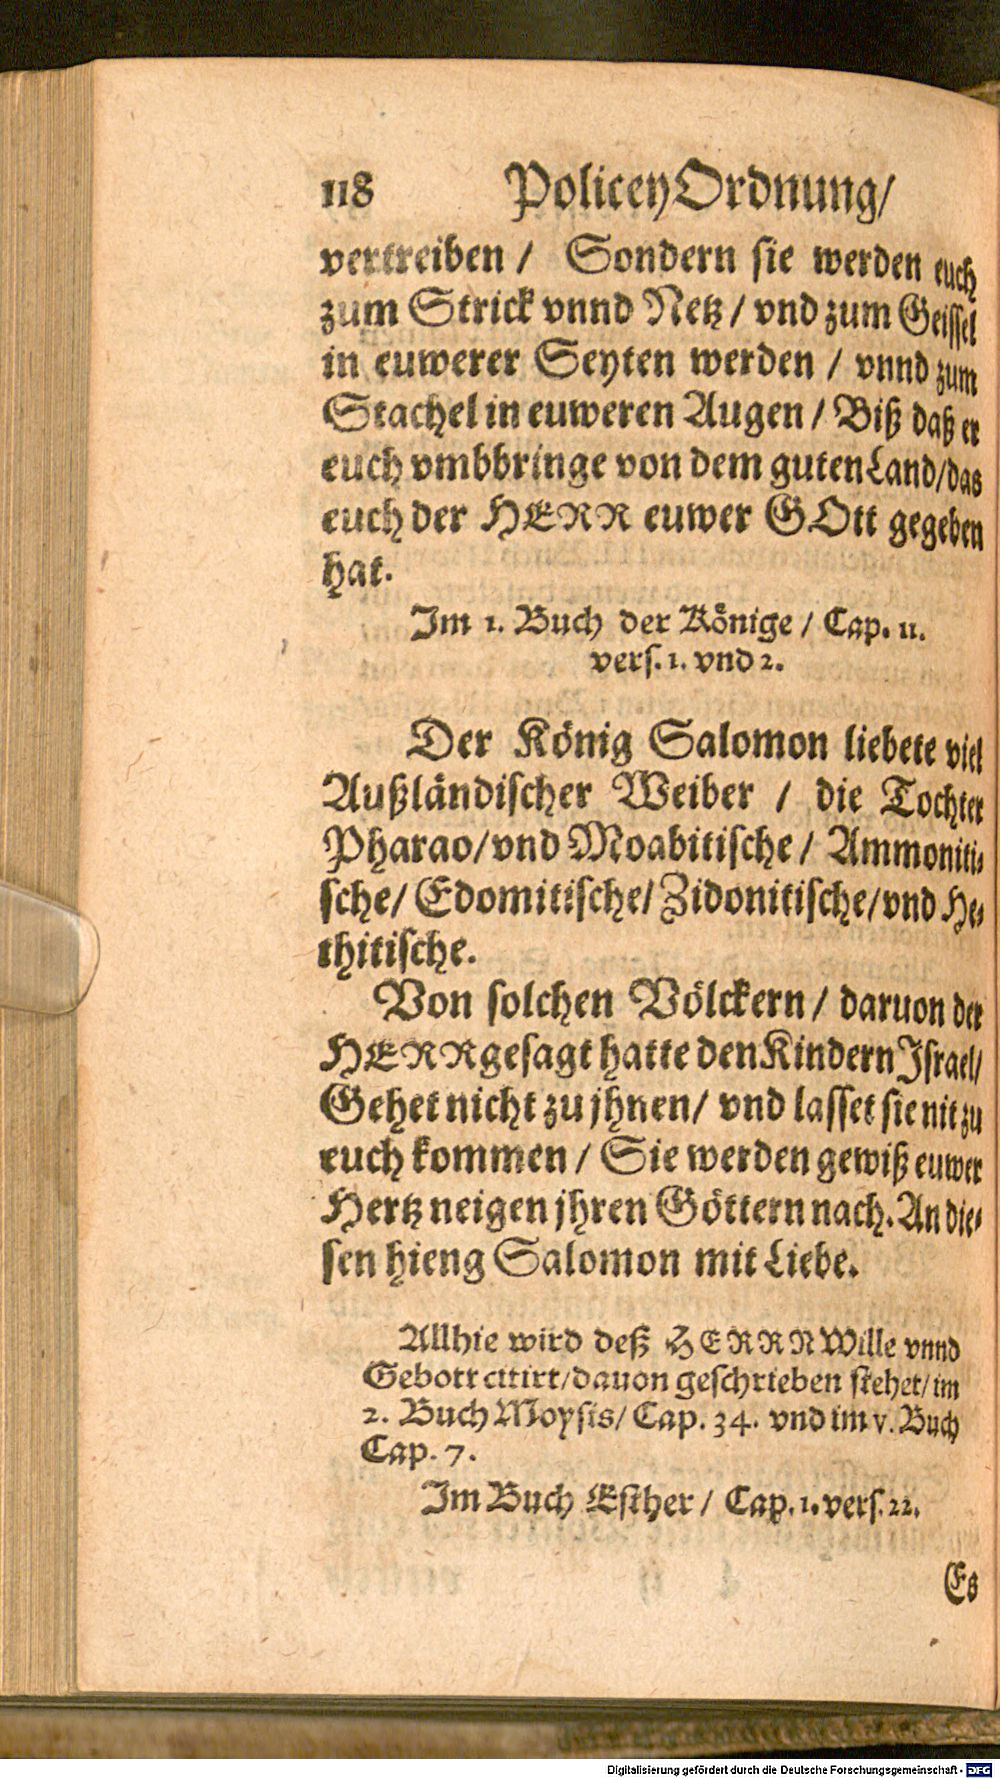 118 Policey Ordnung/
vertreiben / Sondern sie werden euch
zum Strick vnnd Netz / vnd zum Geissel
in euwerer Seyten werden / vnnd zum
Stachel in euweren Augen / Biß daß er
euch vmbbringe von dem guten Land/das
euch der HERR euwer GOtt gegeben
hat.
Im 1. Buch der Könige / Cap. 11.
vers. 1. vnd 2.
Der König Salomon liebete viel
Außländischer Weiber / die Tochter
Pharao/vnd Moabitische / Ammoniti-
sche/ Edomitische/ Zidonitische/vnd He-
thitische.
Von solchen Völckern / daruon der
HERR gesagt hatte den Kindern Israel/
Gehet nicht zu jhnen/ vnd lasset sie nit zu
euch kommen / Sie werden gewiß euwer
Hertz neigen jhren Göttern nach. An die-
sen hieng Salomon mit Liebe.
Allhie wird deß HERRN Wille vnnd
Gebott citirt/dauon geschrieben stehet/im
2. Buch Moysis/ Cap. 34. vnd im v. Buch
Cap. 7.
Im Buch Esther / Cap. 1. vers. 22.
Es
Digitalisierung gefördert durch die Deutsche Forschungsgemeinschaft - DFG